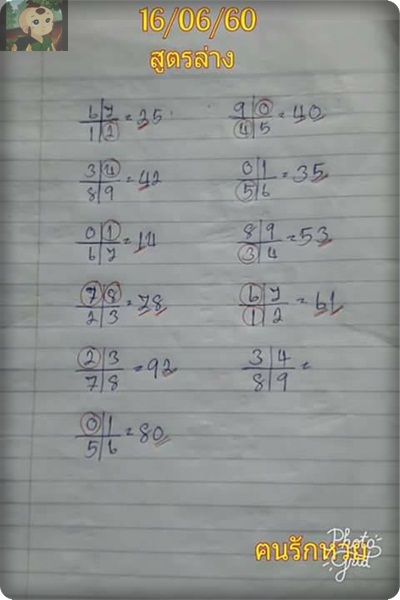 16/06/60
สูตรล่าง
6|7
1|2 = 25
3|4
8|9 = 42
0|1
6|7 = 14
7|8
2|3 = 78
2|3
7|8 = 92
0|1
5|6 = 80
9|0
4|5 = 40
0|1
5|6 = 35
8|9
3|4 = 53
6|7
1|2 = 61
3|4
8|9 =
คนรักหวย
Photo
Grid